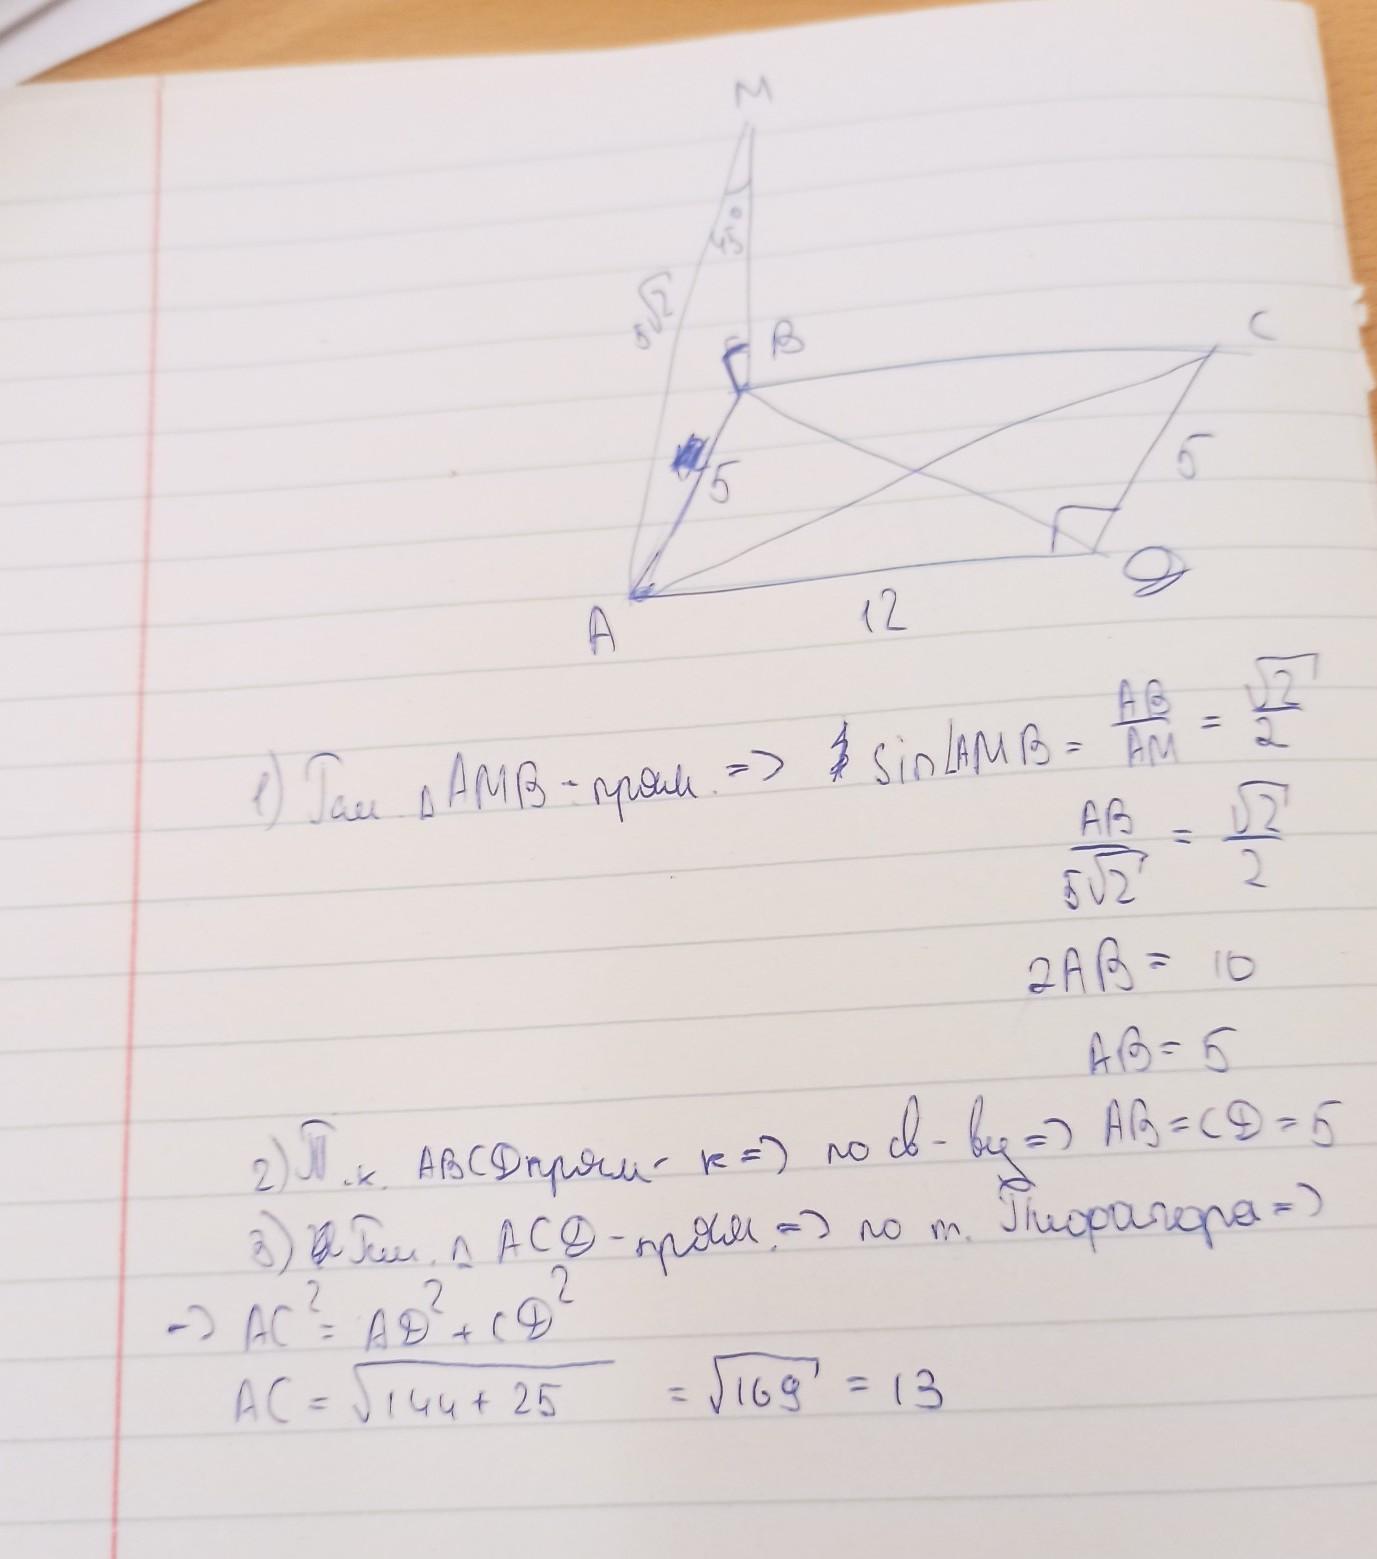 M
45°
5√2
B
C
5
5
A
12
D
1) Рассм △ AMB - прям. => sin∠AMB = AB/AM = √2/2
AB/5√2 = √2/2
2AB = 10
AB = 5
2) Т.к. ABCD прям-к => по св-ву => AB = CD = 5
3) △ ACD - прям. => по т. Пифагора =>
=> AC² = AD² + CD²
AC = √144 + 25 = √169 = 13